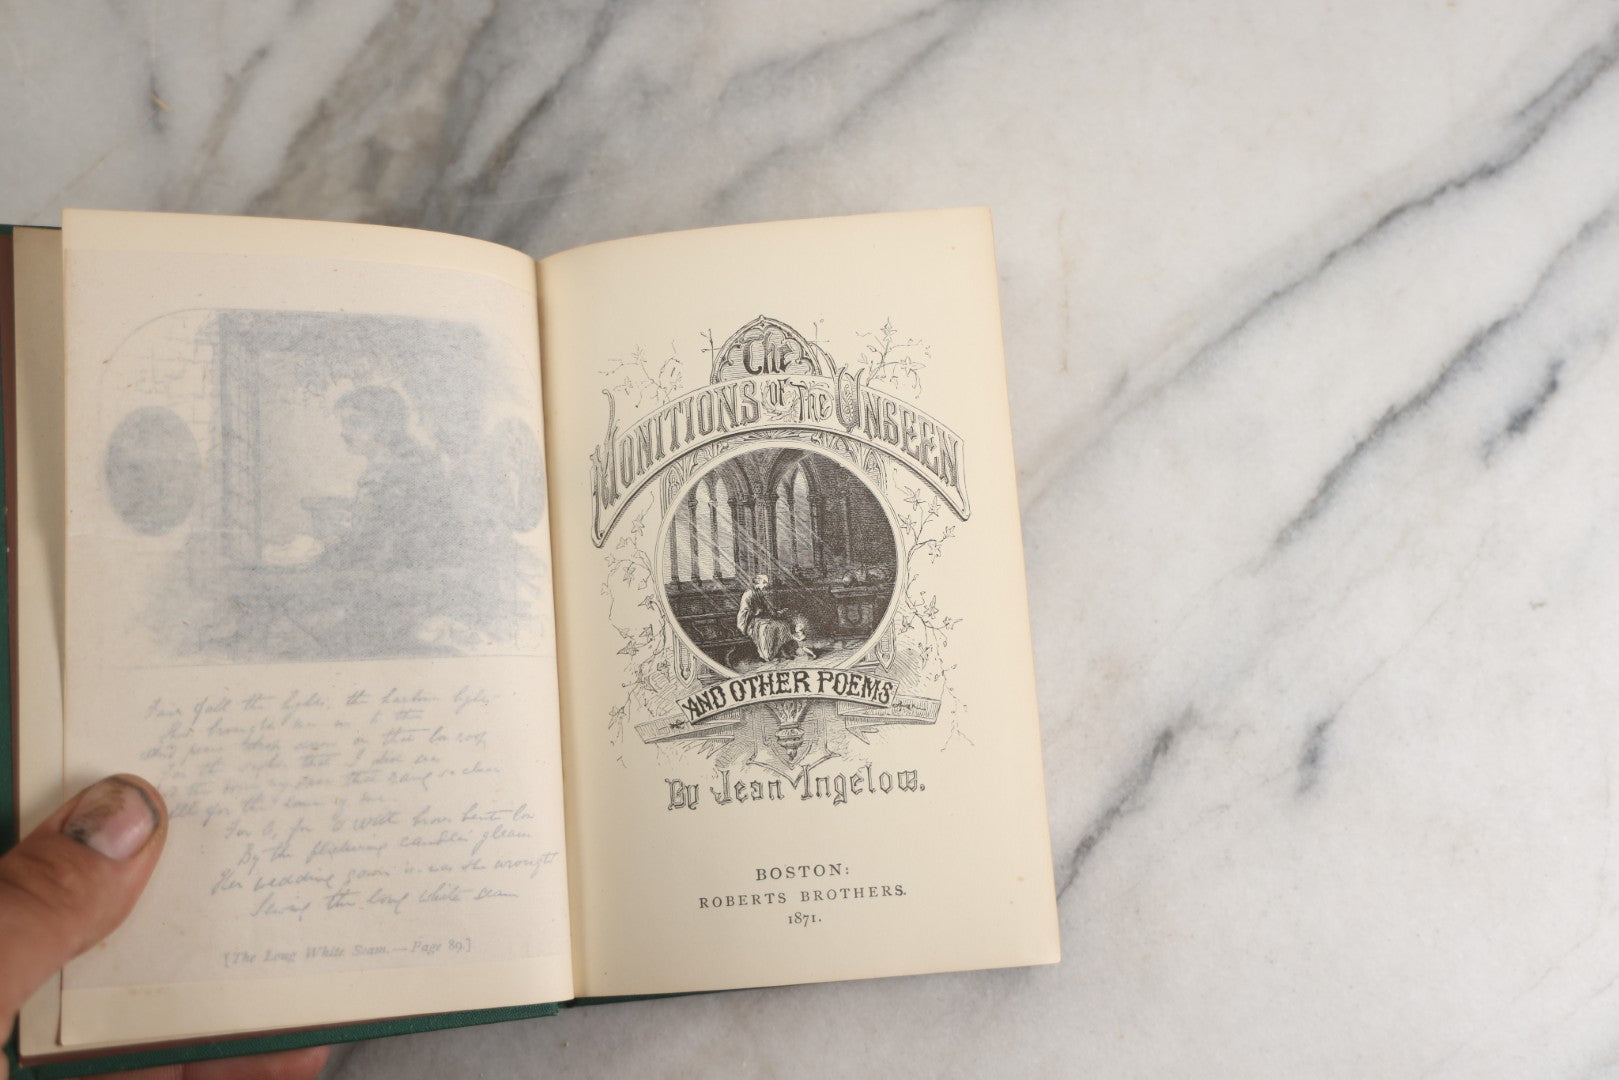 Fair fall the lights, the harbour lights,
And peace drop down on that low roof
For the sights that I did see
For O, for O, with brows bent low
By the flickering candle's gleam
Her wedding gown it was she wrought
Sewing the long white seam
[The Long White Seam.—Page 89.]
The
MONITIONS OF THE UNSEEN
AND OTHER POEMS
By Jean Ingelow.
BOSTON:
ROBERTS BROTHERS.
1871.